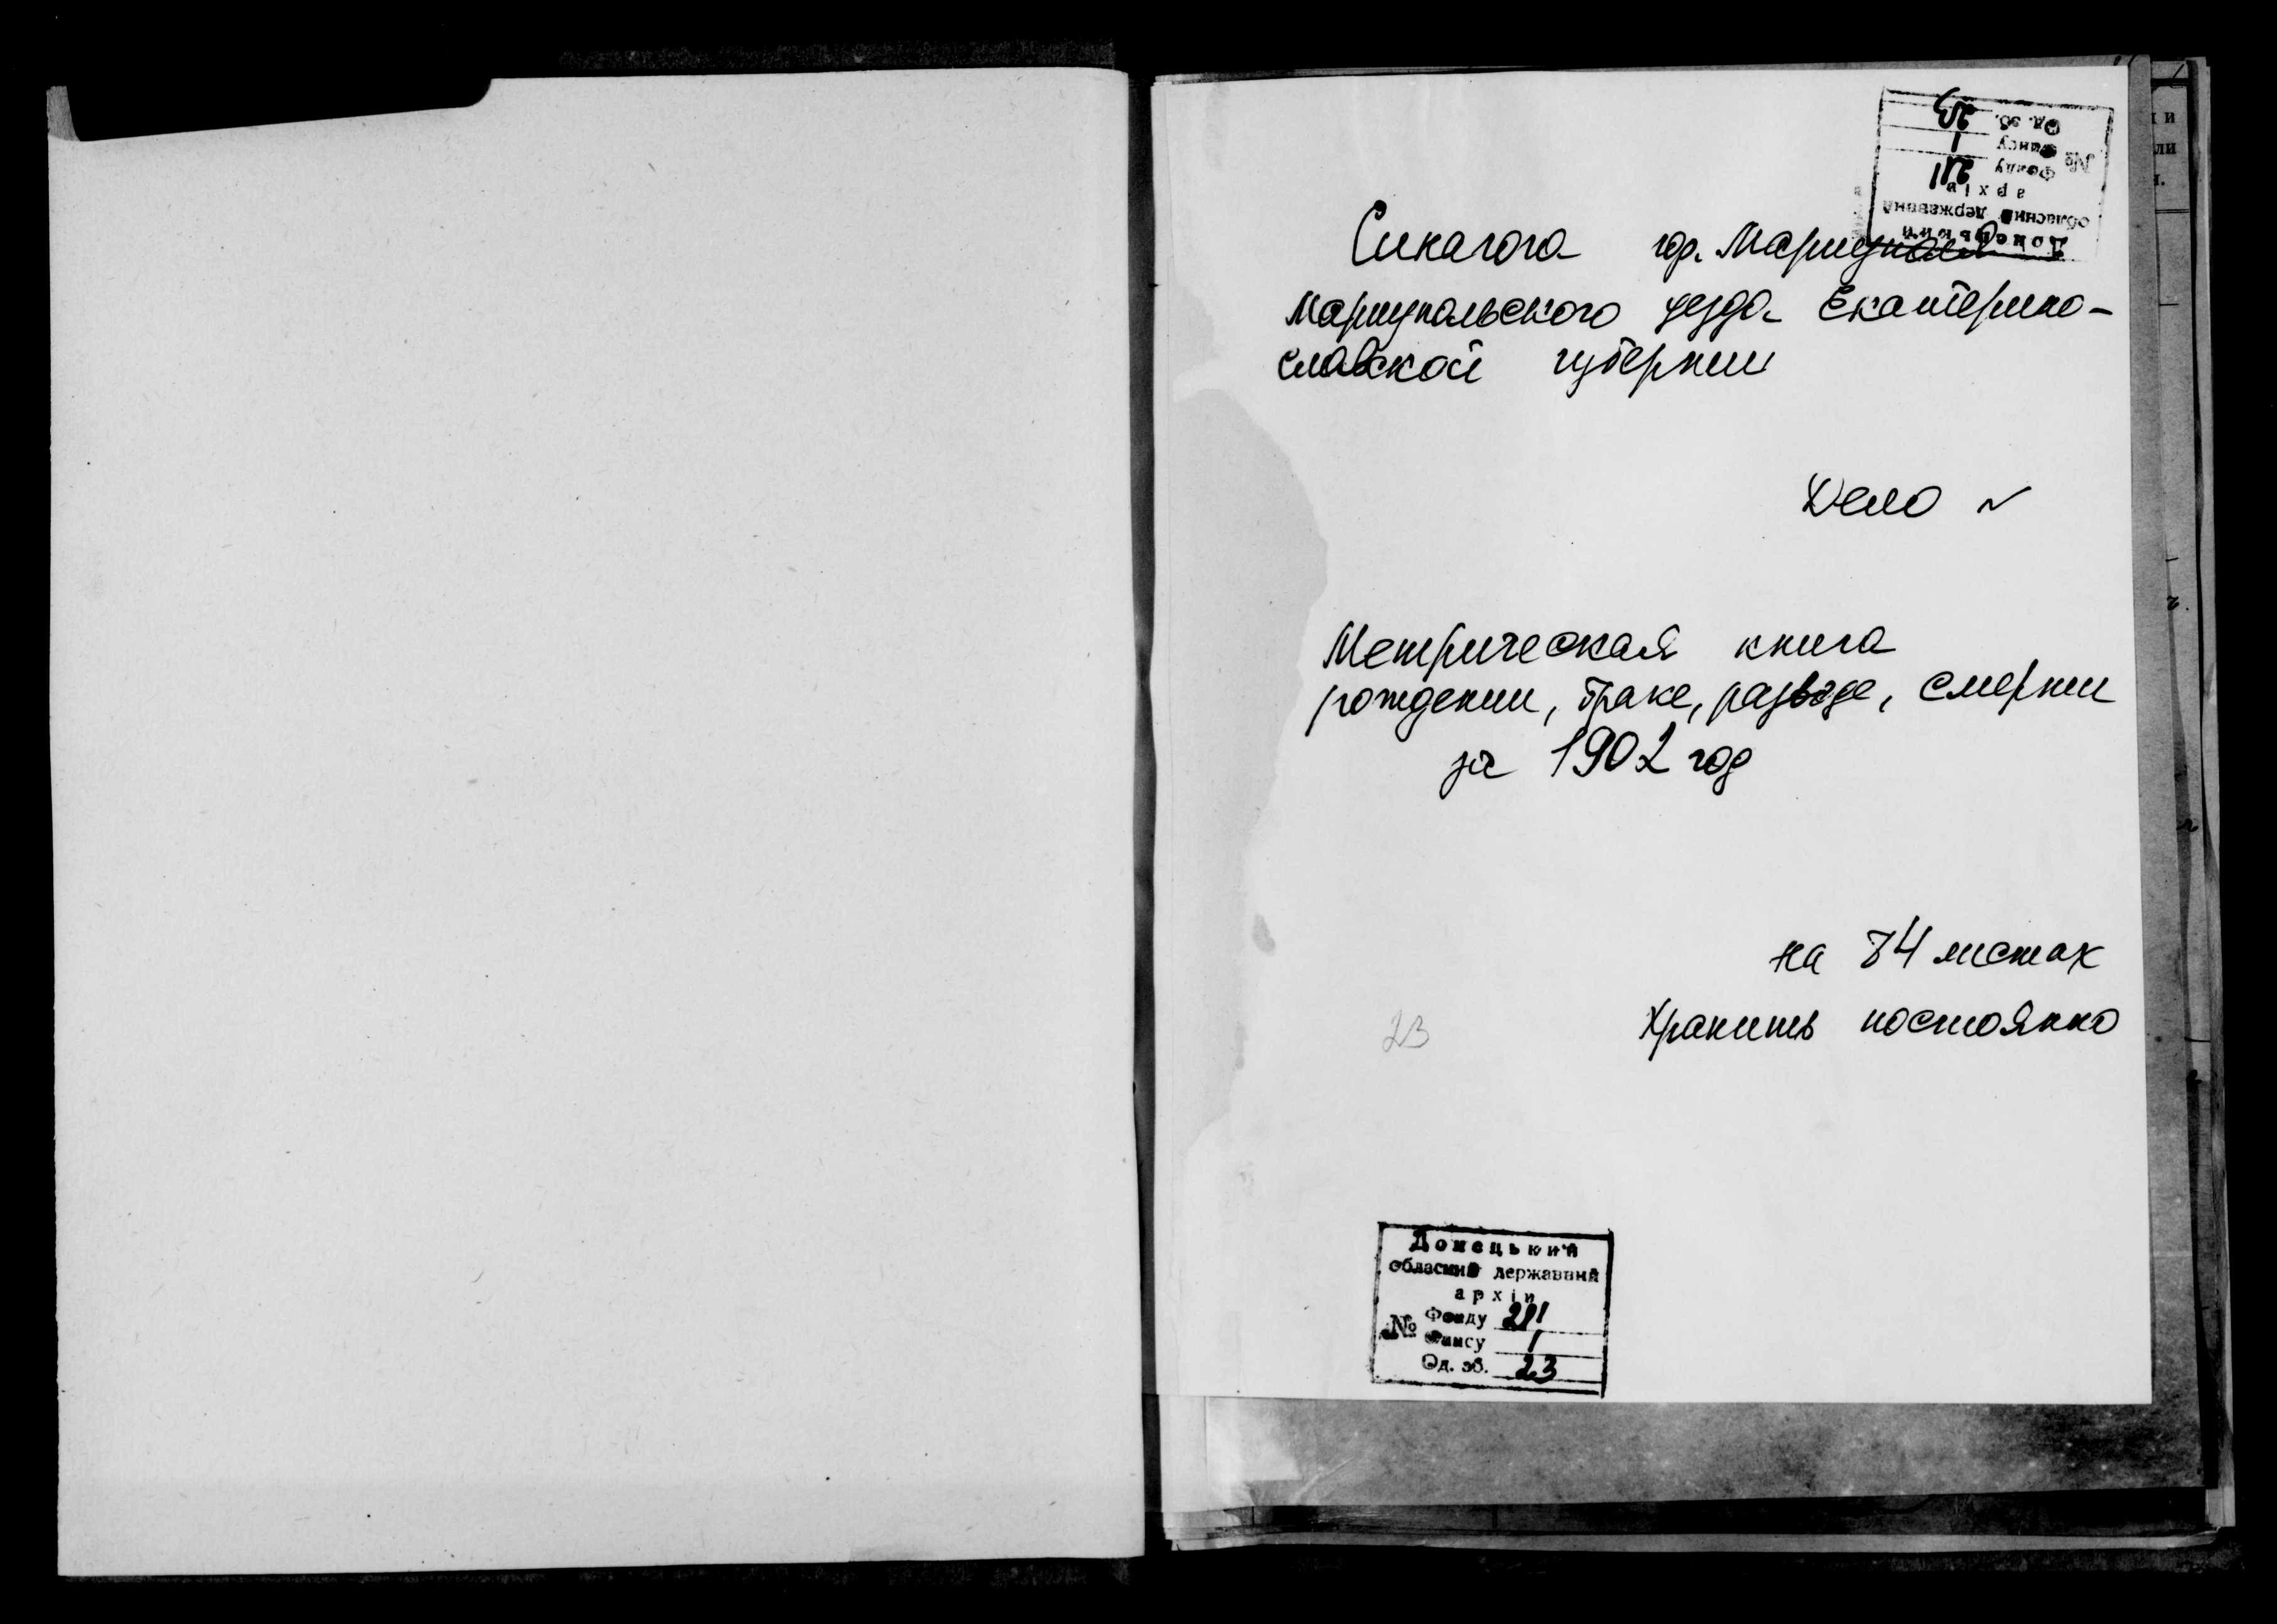 Синагога гор. Мариуполя
Мариупольского уезда Екатерино-
славской губернии
Дело №
Метрическая книга
рождении, браке, разводе, смерти
за 1902 год
на 84 листах
Хранить постоянно
23
Донецький
обласний державний
архів
№ Фонду 211
Опису 1
Од. зб. 23
Донецький
обласний державний
архів
№ Фонду 211
Опису 1
Од. зб. 23